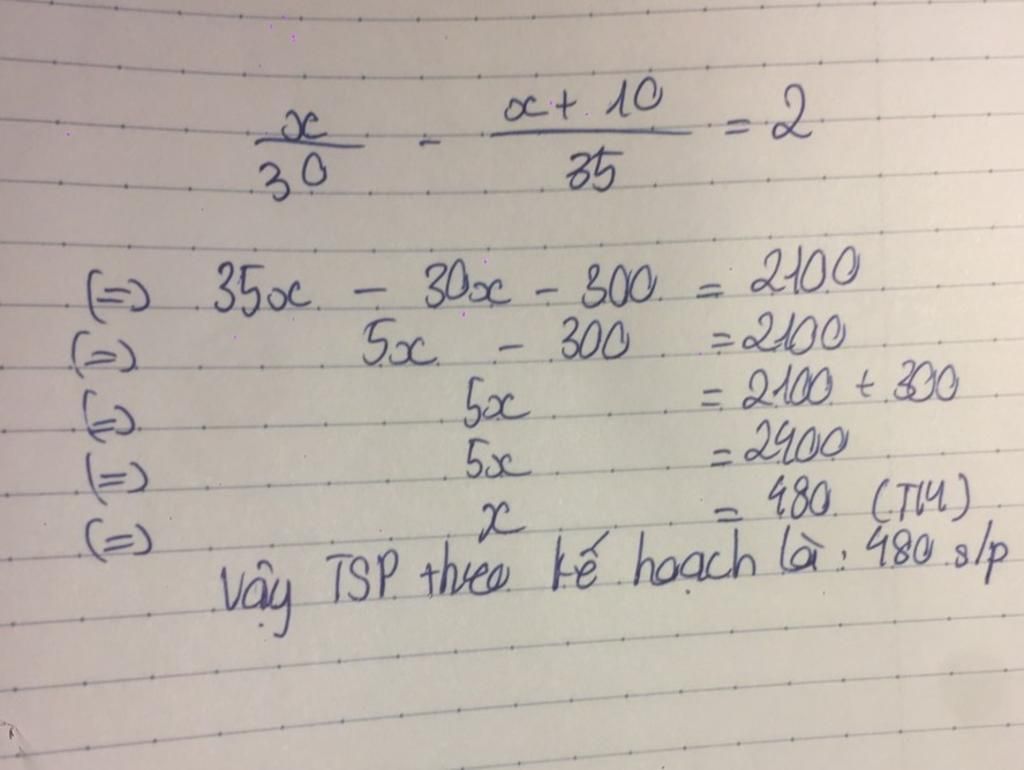 x/30 - x + 10/35 = 2
(=) 35x - 30x - 300 = 2100
(=) 5x - 300 = 2100
(=) 5x = 2100 + 300
(=) 5x = 2400
(=) x = 480 (TM)
Vậy TSP theo kế hoạch là: 480 s/p